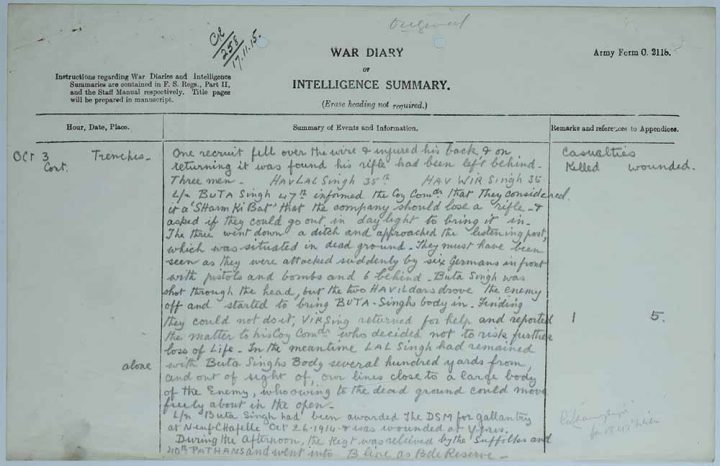 Original
CR
258
17.11.15.
WAR DIARY
OF
INTELLIGENCE SUMMARY.
(Erase heading not required.)
Army Form C. 2118.
Instructions regarding War Diaries and Intelligence
Summaries are contained in F. S. Regs., Part II,
and the Staff Manual respectively. Title pages
will be prepared in manuscript.
Hour, Date, Place.
Summary of Events and Information.
Remarks and references to Appendices.
Oct 3 Trenches-
Cont.
One recruit fell over the wire & injured his back & on
returning it was found his rifle had been left behind-
Three men- HAV LAL Singh 35th HAV WIR Singh 35
L/n BUTA Singh 47th informed the Coy Comdr that they considered
it a 'SHarm Ki Bat' that the company should lose a rifle- &
asked if they could go out in daylight to bring it in-
The three went down a ditch and approached the listening post,
which was situated in dead ground- They must have been
seen as they were attacked suddenly by six Germans in front
with pistols and bombs and 6 behind- Buta Singh was
shot through the head, but the two HAVILdars drove the Enemy
off and started to bring BUTA-Singhs body in. Finding
they could not do it, VIR Sing returned for help and reported
the matter to his Coy Comdr who decided not to risk further
loss of Life- In the meantime LAL Singh had remained
alone
with Buta Singhs Body several hundred yards from,
and out of sight of, our lines close to a large body
of the Enemy, who owing to the dead ground could move
freely about in the open-
L/n Buta Singh had been awarded The DSM for gallantry
at Neuf-Chapelle Oct 26-1914- & was wounded at Ypres.
During the Afternoon, the Regt was relieved by the Suffolks and
40th PATHANS and went into B line as Bde Reserve-
Casualties
Killed wounded.
1 5.